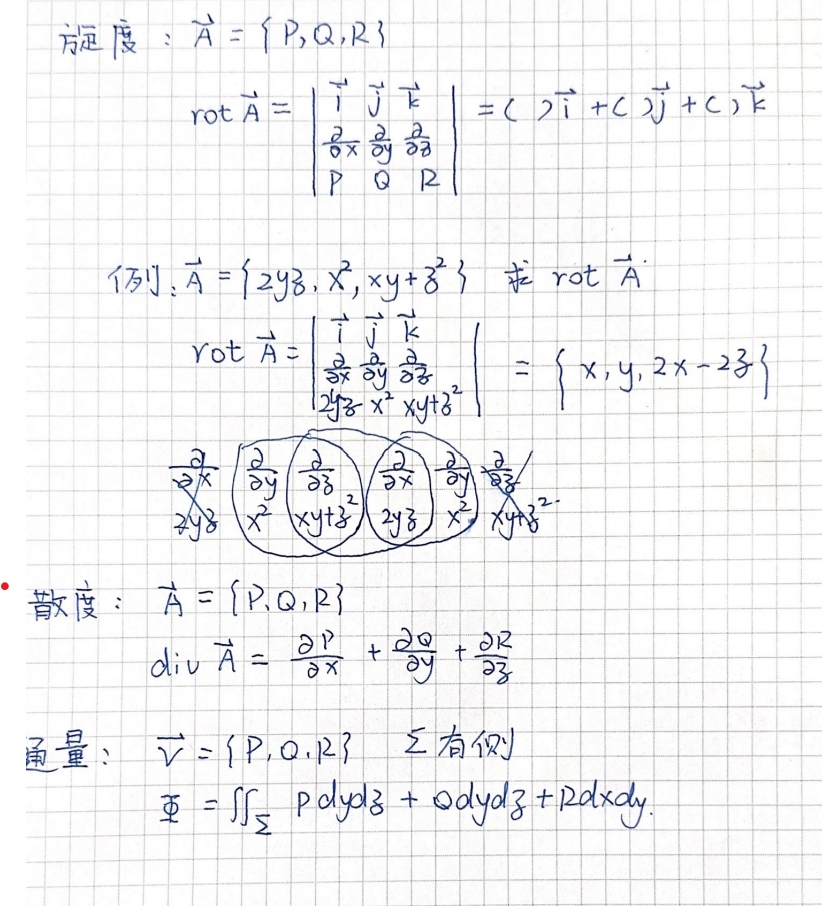 旋度：A⃗ = {P, Q, R}
rot A⃗ = | i⃗ j⃗ k⃗ | = ( )i⃗ + ( )j⃗ + ( )k⃗
∂/∂x ∂/∂y ∂/∂z
P Q R
例：A⃗ = {2yz, x², xy+z²} 求 rot A⃗.
rot A⃗ = | i⃗ j⃗ k⃗ | = {x, y, 2x-2z}
∂/∂x ∂/∂y ∂/∂z
2yz x² xy+z²
∂/∂x ∂/∂y ∂/∂z ∂/∂x ∂/∂y ∂/∂z
2yz x² xy+z² 2yz x² xy+z²
散度：A⃗ = {P, Q, R}
div A⃗ = ∂P/∂x + ∂Q/∂y + ∂R/∂z
通量：V⃗ = {P, Q, R} Σ有侧
Φ = ∬_Σ Pdydz + Qdydz + Rdxdy.